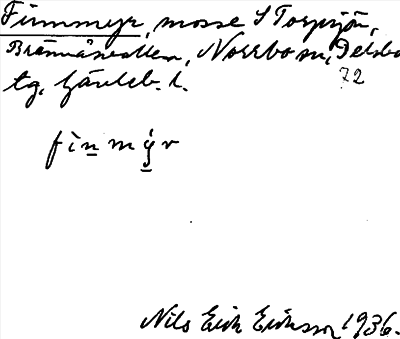 Finnmyr, mosse S Torpsjön,
Brännåsvallen, Norrbo sn, Delsbo
72
tg, Gävleb. l.
fìnmýr
Nils Erik Eriksson 1936.